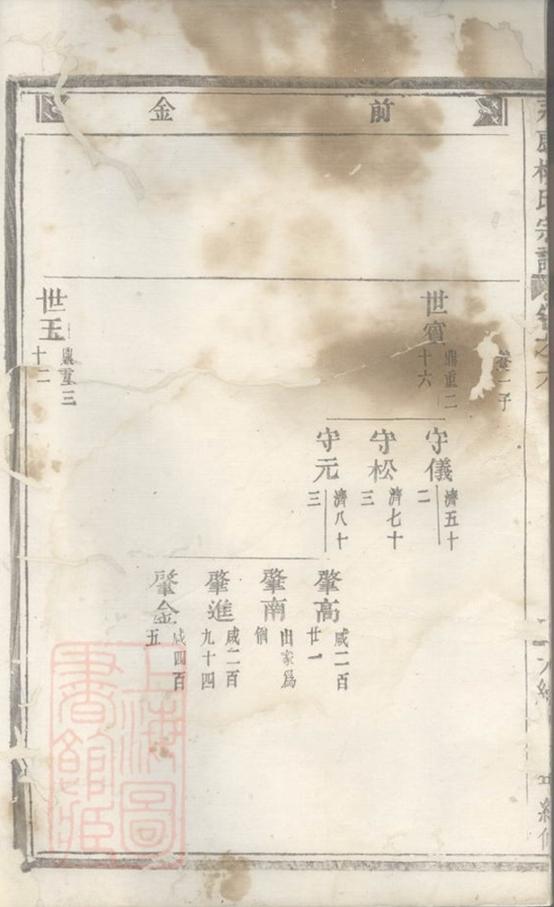 氏宗譜
前金
養一子
世賓
鼎重二
十六
守儀
濟五十
二
守松
濟七十
三
守元
濟八十
三
肇高
咸二百
廿一
肇南
出家爲
僧
肇進
咸二百
九十四
肇金
咸四百
五
世玉
鼎重三
十二
上海圖
書館藏